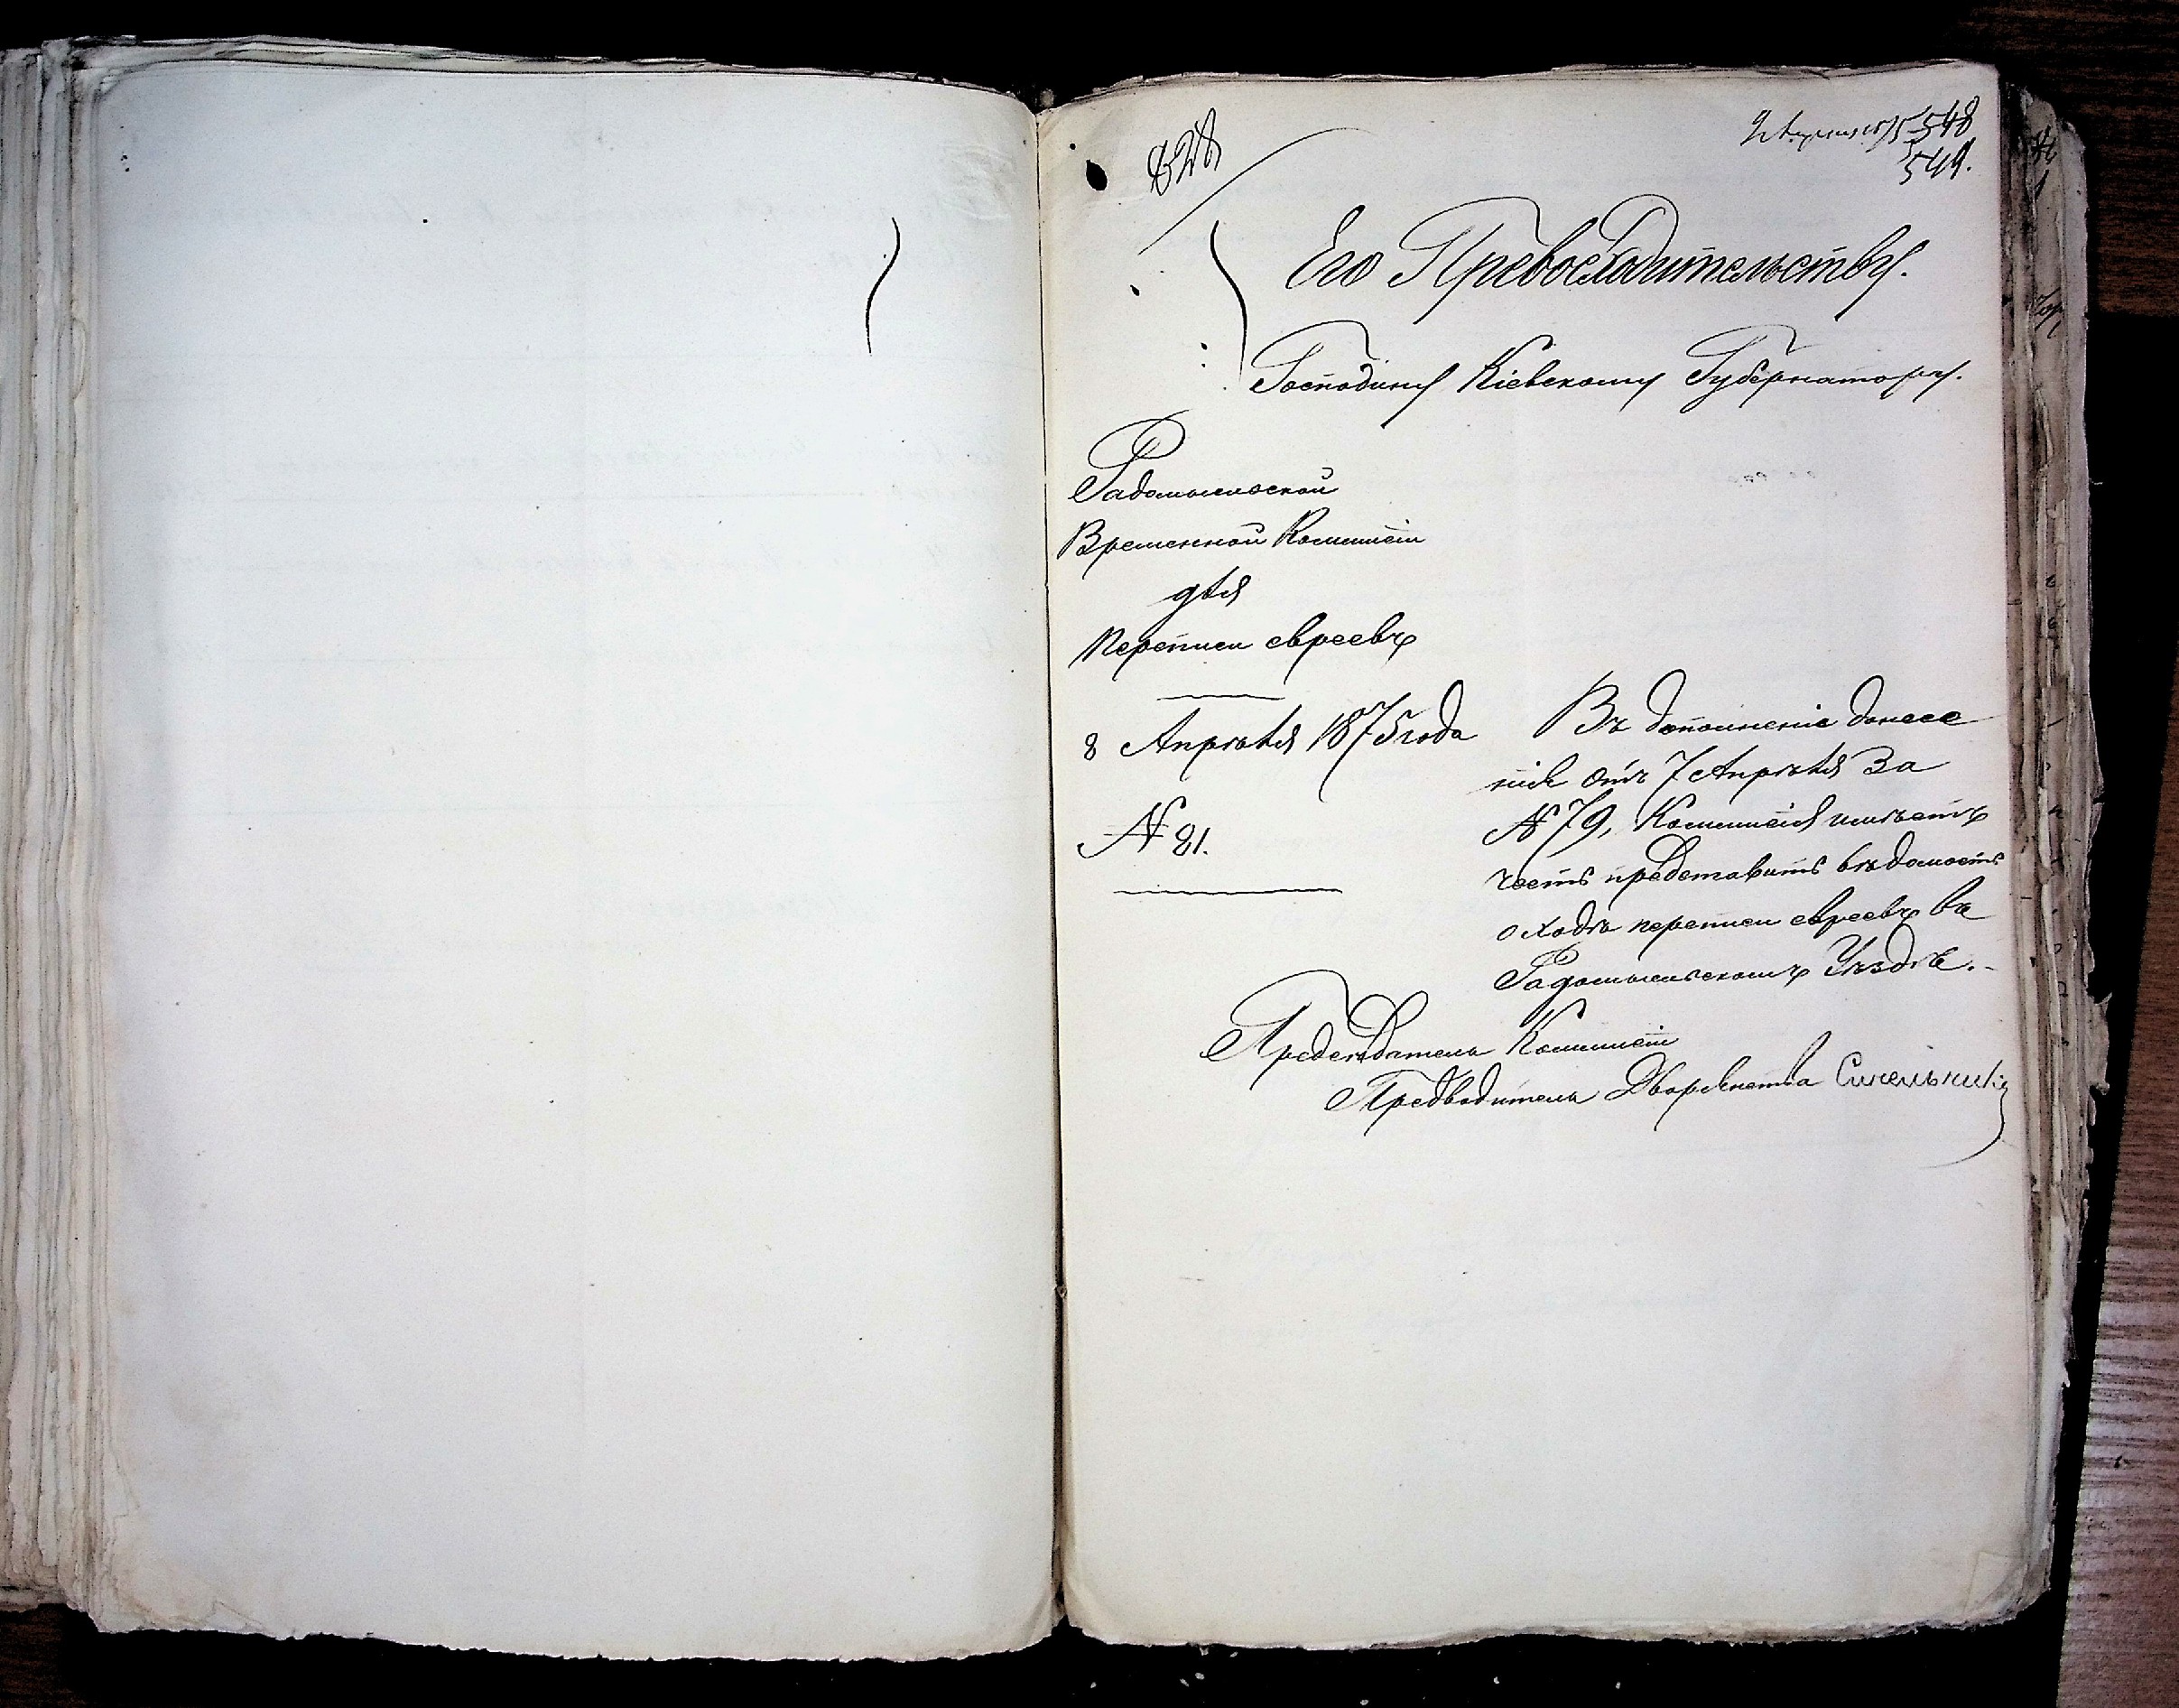 828
548
549.
Его Превосходительству.
Господину Кіевскому Губернатору.
Радомысльской
Временной Коммисіи
для
Переписи евреевъ
8 Апрѣля 1875 года
№ 81.
Въ дополненіе донесе
нія отъ 7 Апрѣля За
№ 79, Коммисія имѣетъ
честь представить вѣдомость
о ходѣ переписи евреевъ въ
Радомысльскомъ Уѣздѣ.-
Предсѣдатель Коммисіи
Предводитель Дворянства